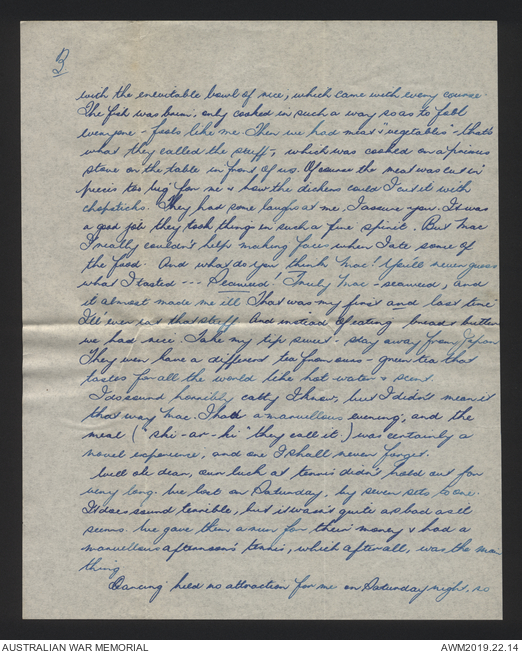 3
with the inevitable bowl of rice, which came with every course.
The fish was burn, only cooked in such a way so as to fool
everyone - fools like me. Then we had meat & vegetables" - that's
what they called the stuff -, which was cooked on a primus
stove on the table in front of us. Of course the meat was cut in
pieces too big for me & how the dickens could I cut it with
chopsticks. They had some laughs at me, I assure you. It was
a good job they took things in such a fine spirit. But Mac
I really couldn't help making faces when I ate some of
the food. And what do you think Mac! You'll never guess
what I tasted --- Seaweed! Truly Mac - seaweed, and
it almost made me ill. That was my first and last time
I'll ever eat that stuff. And instead of eating bread & butter
we had rice. Take my tip sweet - stay away from Japan
They even have a different tea from ours - green tea that
tastes for all the world like hot water & scent.
I do sound horribly catty I know, but I didn't mean it
that way Mac. I had a marvellous evening, and the
meal ("ski-ar-ki" they call it.) was certainly a
novel experience, and one I shall never forget.
Well ole dear, our luck at tennis didn't hold out for
very long. We lost on Saturday, by seven sets to one.
It does sound terrible, but it wasn't quite as bad as it
seems. We gave them a run for their money & had a
marvellous afternoon's tennis, which after all, was the main
thing.
Dancing held no attraction for me on Saturday night, so
AUSTRALIAN WAR MEMORIAL
AWM2019.22.14